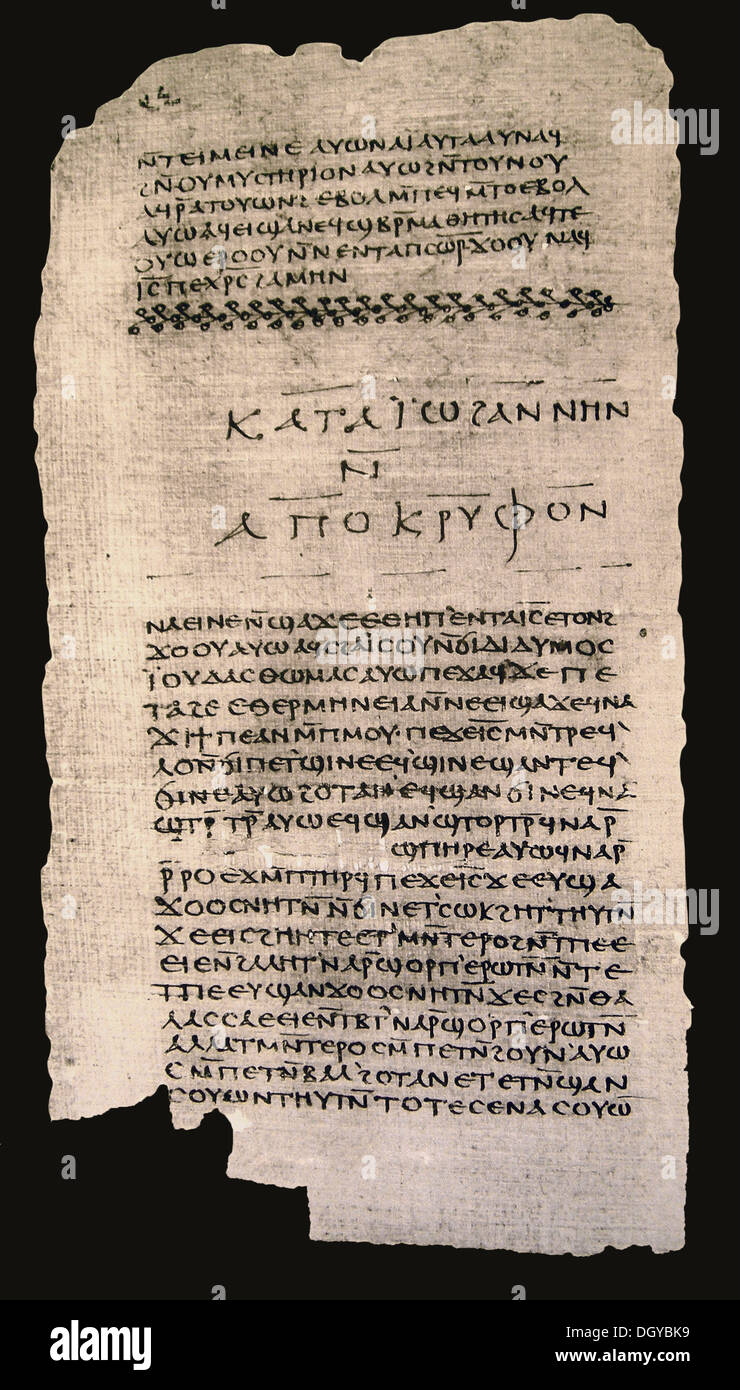 ⲛ̄ⲧⲉⲓⲙⲉⲓⲛⲉ ⲁⲩⲱ ⲛⲁⲓ ⲁⲩⲧⲁⲁⲩ ⲛⲁϥ
ϩⲛ̄ⲟⲩⲙⲩⲥⲧⲏⲣⲓⲟⲛ ⲁⲩⲱ ϩⲛ̄ⲧⲟⲩⲛⲟⲩ
ⲁϥⲣ̄ⲁⲧⲟⲩⲱⲛϩ ⲉⲃⲟⲗ ⲙ̄ⲡⲉϥⲙ̄ⲧⲟ ⲉⲃⲟⲗ
ⲁⲩⲱ ⲁϥⲉⲓ ϣⲁ ⲛⲉϥϣⲃⲣ̄ⲙⲁⲑⲏⲧⲏⲥ ⲁϥⲧⲉ
ⲟⲩⲱ ⲉⲣⲟⲟⲩ ⲛ̄ⲛⲉⲛⲧⲁⲡⲥⲱ̄ⲣ̄ ϫⲟⲟⲩ ⲛⲁϥ
ⲓ̄ⲥ̄ ⲡⲉⲭ̄ⲣ̄ⲥ̄ ϩⲁⲙⲏⲛ
ⲕⲁⲧⲁ ⲓ̈ⲱϩⲁⲛⲛⲏⲛ
ⲛ̄
ⲁⲡⲟⲕⲣⲩⲫⲟⲛ
ⲛⲁⲉⲓ ⲛⲉ ⲛ̄ϣⲁϫⲉ ⲉⲑⲏⲡ ⲉⲛⲧⲁⲓ̄ⲥ̄ ⲉⲧⲟⲛϩ
ϫⲟⲟⲩ ⲁⲩⲱ ⲁϥⲥϩⲁⲓⲥⲟⲩ ⲛ̄ϭⲓ ⲇⲓⲇⲩⲙⲟⲥ
ⲓ̈ⲟⲩⲇⲁⲥ ⲑⲱⲙⲁⲥ ⲁⲩⲱ ⲡⲉϫⲁϥ ϫⲉ ⲡⲉ
ⲧⲁϩⲉ ⲉⲑⲉⲣⲙⲏⲛⲉⲓⲁ ⲛ̄ⲛⲉⲉⲓϣⲁϫⲉ ϥⲛⲁ
ϫⲓ ϯⲡⲉ ⲁⲛ ⲙ̄ⲡⲙⲟⲩ ⲡⲉϫⲉ ⲓ̄ⲥ̄ ⲙⲛ̄ⲧⲣⲉϥ
ⲗⲟ ⲛ̄ϭⲓ ⲡⲉⲧϣⲓⲛⲉ ⲉϥϣⲓⲛⲉ ϣⲁⲛⲧⲉϥ
ϭⲓⲛⲉ ⲁⲩⲱ ϩⲟⲧⲁⲛ ⲉϥϣⲁⲛϭⲓⲛⲉ ϥⲛⲁ
ϣⲧⲣ̄ⲧⲣ̄ ⲁⲩⲱ ⲉϥϣⲁⲛϣⲧⲟⲣⲧⲣ̄ ϥⲛⲁⲣ̄
ϣⲡⲏⲣⲉ ⲁⲩⲱ ϥⲛⲁⲣ̄
ⲣ̄ⲣⲟ ⲉϫⲙ̄ ⲡⲧⲏⲣϥ ⲡⲉϫⲉ ⲓ̄ⲥ̄ ϫⲉ ⲉⲩϣⲁ
ϫⲟⲟⲥ ⲛⲏⲧⲛ̄ ⲛ̄ϭⲓ ⲛⲉⲧⲥⲱⲕ ϩⲏⲧ ⲧⲏⲩⲧⲛ̄
ϫⲉ ⲉⲓⲥϩⲏⲏⲧⲉ ⲉⲧⲙⲛ̄ⲧⲉⲣⲟ ϩⲛ̄ ⲧⲡⲉ ⲉ
ⲉⲓⲉ ⲛ̄ϩⲁⲗⲏⲧ ⲛⲁⲣ̄ϣⲟⲣⲡ ⲉⲣⲱⲧⲛ̄ ⲛ̄ⲧⲉ
ⲧⲡⲉ ⲉⲩϣⲁⲛϫⲟⲟⲥ ⲛⲏⲧⲛ̄ ϫⲉ ⲥϩⲛ̄ ⲑⲁ
ⲗⲁⲥⲥⲁ ⲉⲉⲓⲉ ⲛ̄ⲧⲃⲧ ⲛⲁⲣ̄ϣⲟⲣⲡ ⲉⲣⲱⲧⲛ̄
ⲁⲗⲗⲁ ⲧⲙⲛ̄ⲧⲉⲣⲟ ⲥⲙ̄ⲡⲉⲧⲛ̄ϩⲟⲩⲛ ⲁⲩⲱ
ⲥⲙ̄ⲡⲉⲧⲛ̄ⲃⲁⲗ ϩⲟⲧⲁⲛ ⲉⲧⲉⲧⲛ̄ϣⲁⲛ
ⲥⲟⲩⲱⲛ ⲧⲏⲩⲧⲛ̄ ⲧⲟⲧⲉ ⲥⲉⲛⲁⲥⲟⲩⲱ
alamy
Image ID: DGYBK9
www.alamy.com